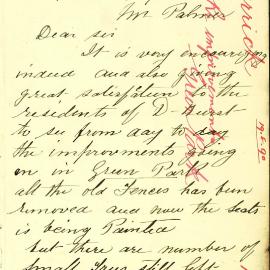 Mr Palmer
Dear sir
It is very encouriging
indeed and also giving
great satisfation to the
residents of D-Hurst
to see from day to day
the improvments going
on in Green Park
all the old Fences has bun
removed and now the seats
is being Painted
but there are number of
small trees still left
19-5-90